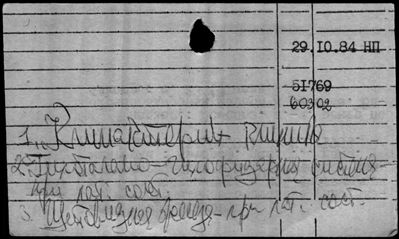 29.10.84 НП
51769
60302
1. Климактерич клиника
2. Гипоталамо-гипофизарная система-
при пат. сост.
3. Щитовидная железа-при пат. сост.